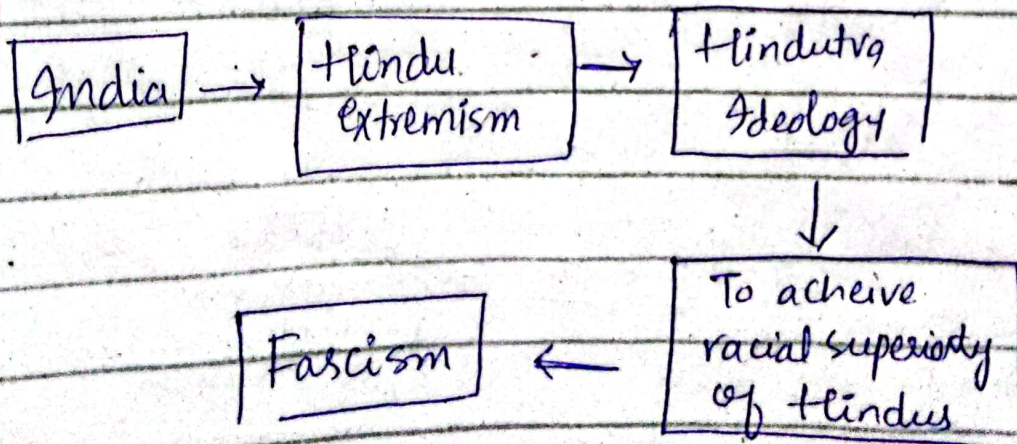 India → Hindu extremism → Hindutva Ideology
↓
To acheive racial superiority of Hindus
← Fascism